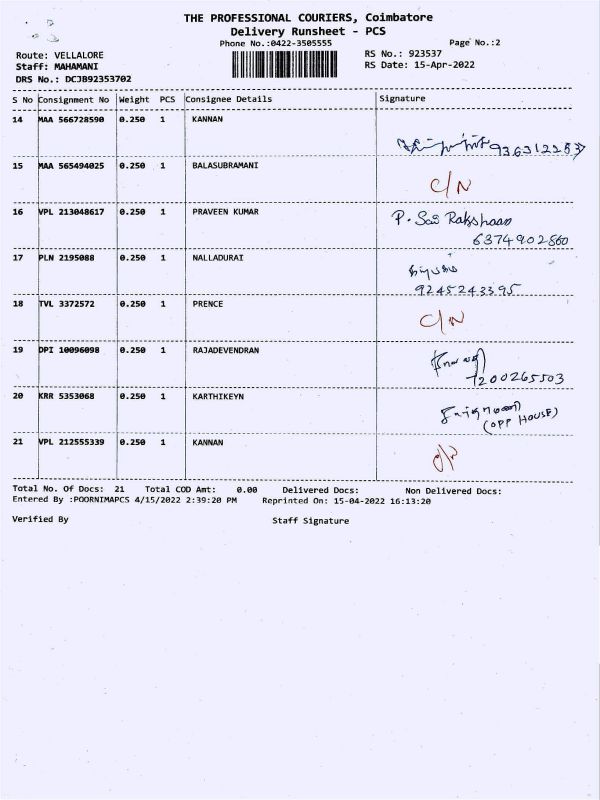 THE PROFESSIONAL COURIERS, Coimbatore
Delivery Runsheet - PCS
Phone No.:0422-3505555
Page No.:2
Route: VELLALORE
RS No.: 923537
Staff: MAHAMANI
RS Date: 15-Apr-2022
DRS No.: DCJB92353702
S No Consignment No Weight PCS Consignee Details Signature
14 MAA 566728590 0.250 1 KANNAN
15 MAA 565494025 0.250 1 BALASUBRAMANI
C/N
16 VPL 213048617 0.250 1 PRAVEEN KUMAR
P. Sai
6374902860
17 PLN 2195088 0.250 1 NALLADURAI
9245243395
18 TVL 3372572 0.250 1 PRENCE
C/N
19 DPI 10096098 0.250 1 RAJADEVENDRAN
7200265503
20 KRR 5353068 0.250 1 KARTHIKEYN
(OPP HOUSE)
21 VPL 212555339 0.250 1 KANNAN
Total No. Of Docs: 21 Total COD Amt: 0.00 Delivered Docs: Non Delivered Docs:
Entered By :POORNIMAPCS 4/15/2022 2:39:20 PM Reprinted On: 15-04-2022 16:13:20
Verified By Staff Signature